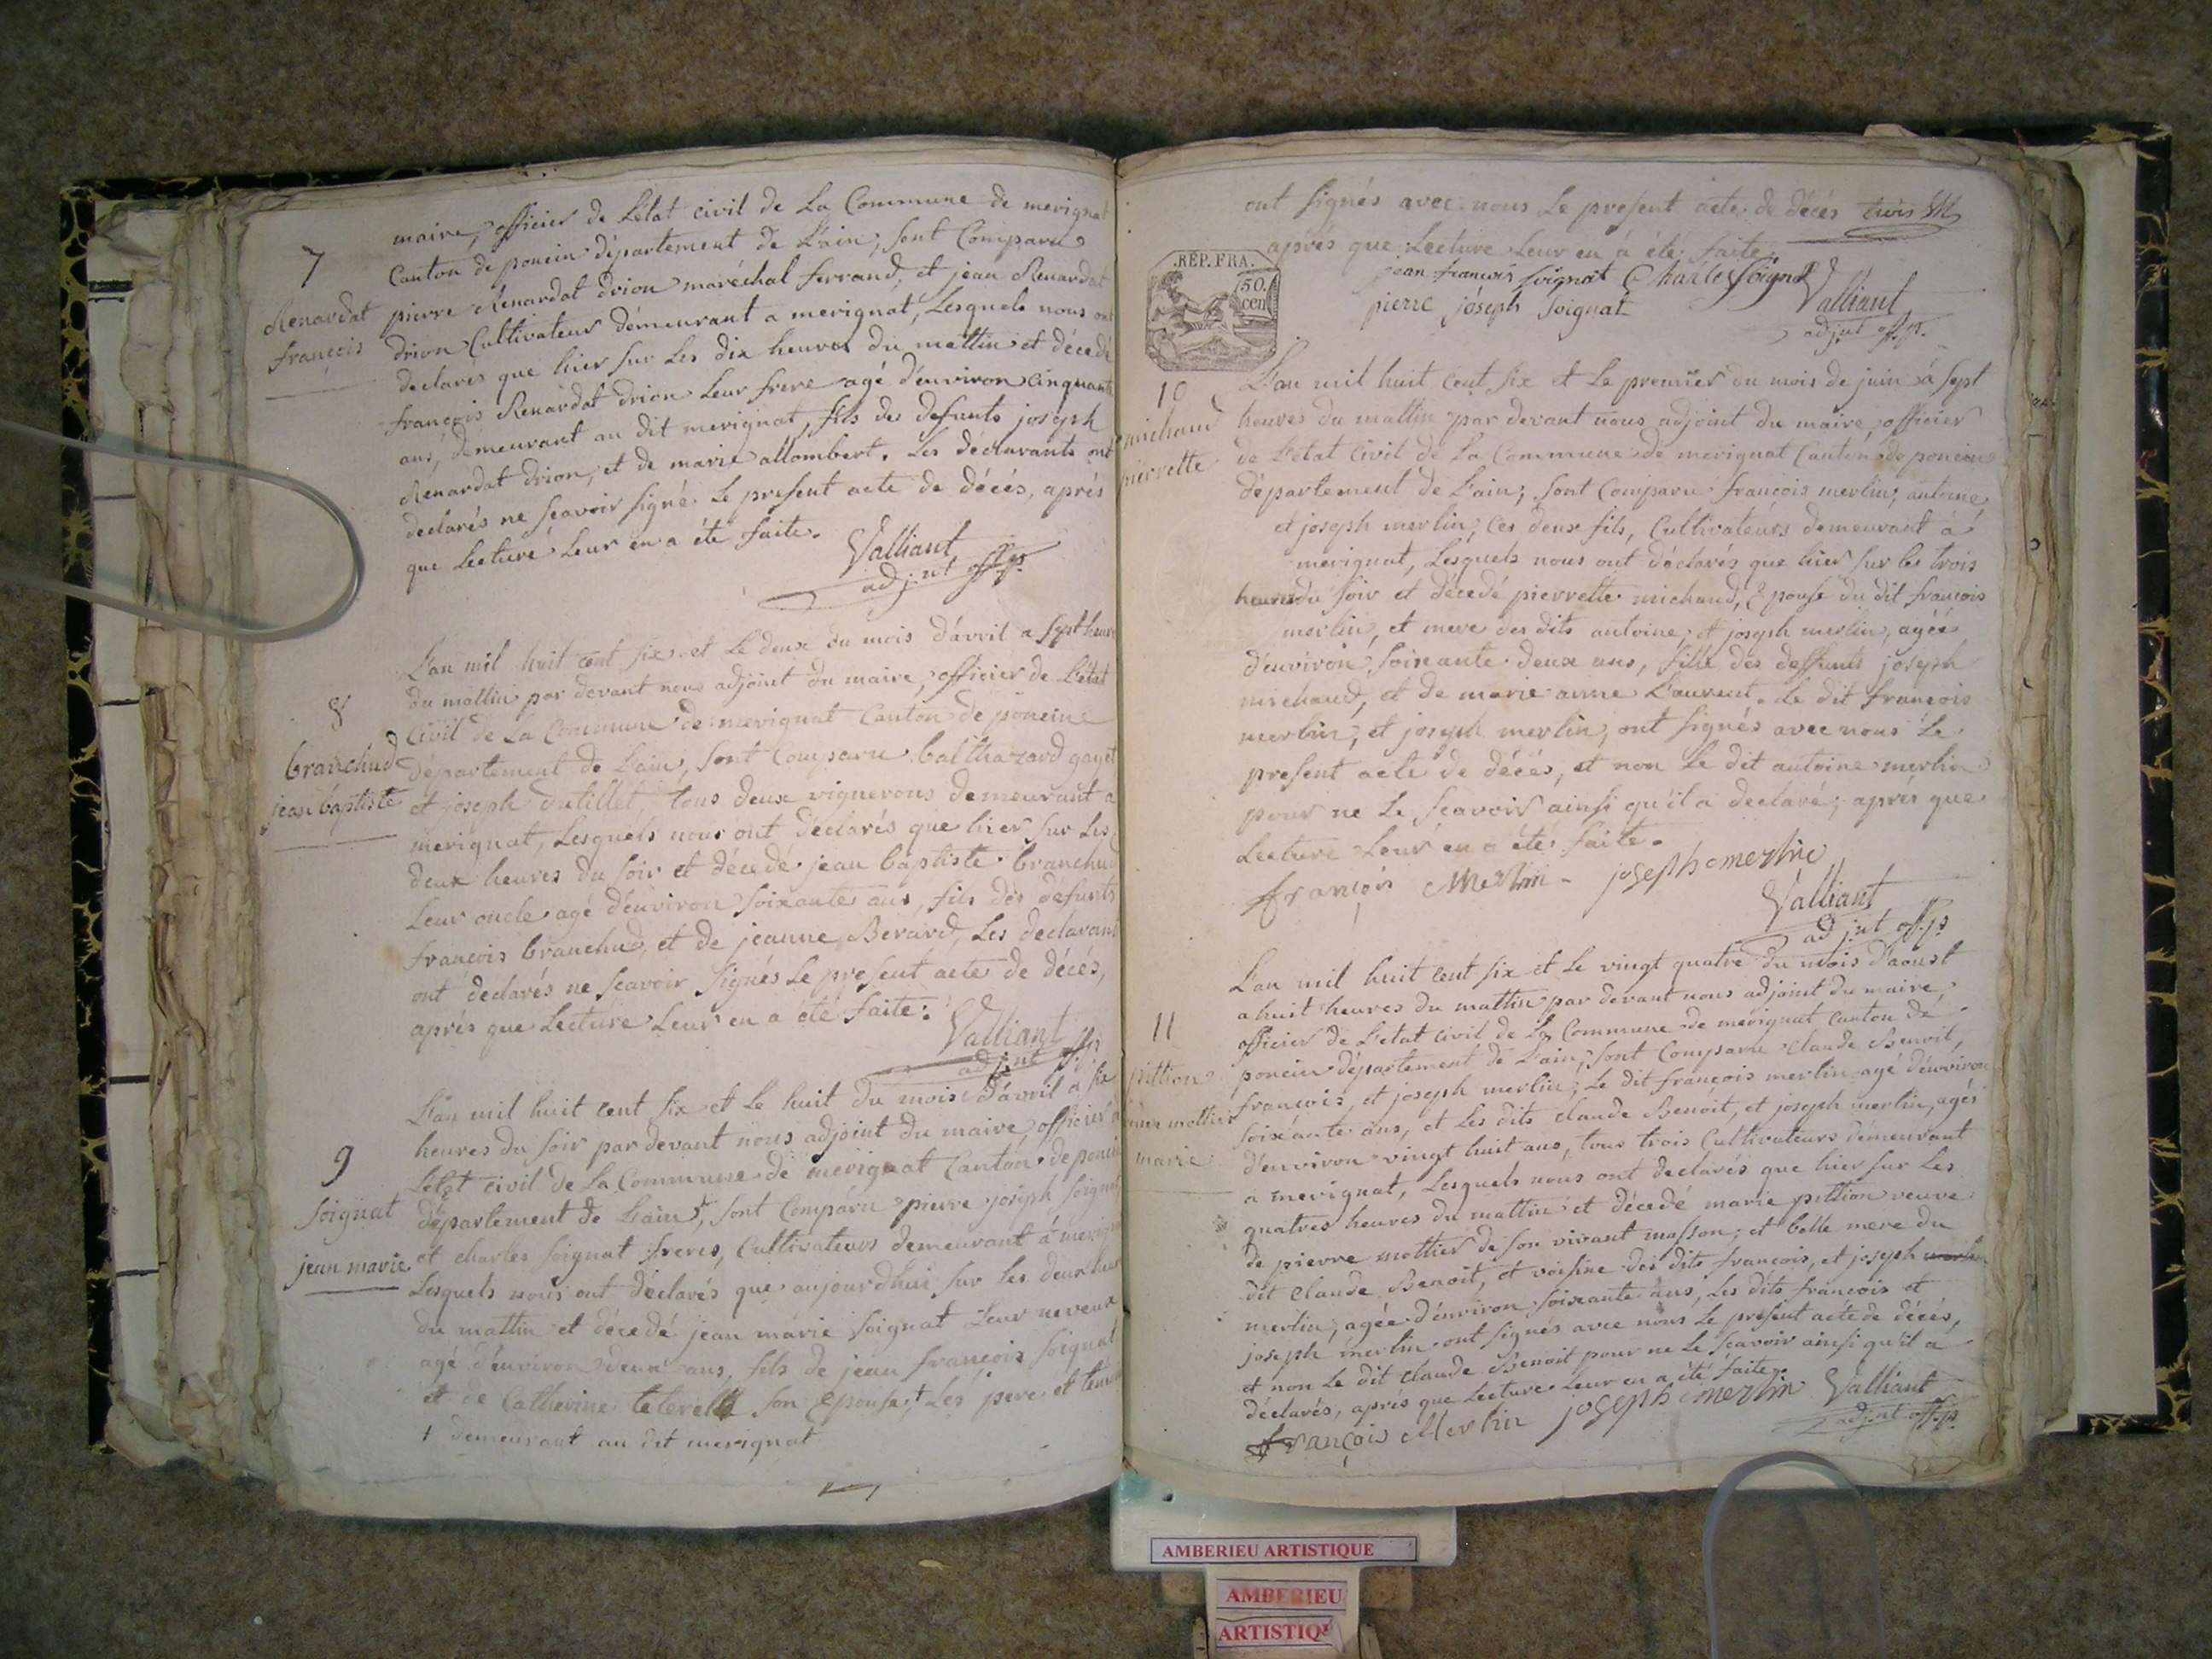 maire, officier de L'état civil de La Commune de merignat
7
Canton de poncin département de L'ain, sont Comparu
Renardat
françois
pierre Renardat drion maréchal ferrand, et jean Renardat
drion Cultivateur démeurant a merignat, Lesquels nous ont
declarés que hier sur Les dix heures du mattin et décedé
françois Renardat drion Leur frere agé d'environ cinquante
ans, demeurant au dit merignat, fils des defunts joseph
Renardat drion, et de marie allombert. Les déclarants ont
declarés ne scavoir signé Le present acte de décés, aprés
que Lecture Leur en a été faite.
Valliant
adjint off. p.
L'an mil huit cent six et Le deux du mois d'avril a sept heures
du mattin par devant nous adjoint du maire, officier de L'état
8
civil de La Commune de merignat Canton de poncin
branchud
jean baptiste
département de L'ain, sont Comparu balthazard gayet
et joseph dutillet, tous deux vignerons demeurant a
merignat, Lesquels nous ont déclarés que hier sur Les
deux heures du soir et décedé jean baptiste branchud
Leur oncle agé d'environ soixante ans, fils des défunts
françois branchud, et de jeanne Berard, Les declarants
ont déclarés ne scavoir signés Le present acte de décés,
aprés que Lecture Leur en a été faite.
Valliant
adjint off. p
L'an mil huit cent six et Le huit du mois d'avril a six
heures du soir par devant nous adjoint du maire, officier de
9
L'etat civil de La Commune de merignat Canton de poncin
Soignat
jean marie
département de L'ain, sont Comparu pierre joseph Soignat
et charles soignat freres, Cultivateurs demeurant á merignat
Lesquels nous ont déclarés que aujourdhui sur Les deux heures
du mattin et décedé jean marie Soignat Leur neveux
agé d'environ deux ans, fils de jean françois Soignat
et de Catherine son Epouse † Les pere et
† demeurant au dit merignat
ont signés avec nous Le present acte de décés
aprés que Lecture Leur en á été faite.
.REP. FRA.
50.
cen
jean francois soignat Charle Soignat
pierre jóseph soignat
Valliant
adjut off. p.
10
michaud
pierrette
L'an mil huit Cent six et Le premier du mois de juin á sept
heures du mattin par devant nous adjoint du maire, officier
de L'etat Civil de La Commune de merignat Canton de poncin
département de L'ain; sont Comparu françois merlin, antoine,
et joseph merlin, Ces deux fils, Cultivateurs demeurant á
merignat, Lesquels nous ont déclarés que hier sur les trois
heures du soir et décedé pierrette michaud, Epouse du dit françois
merlin, et mere des dits antoine, et joseph merlin, agée
d'environ soixante deux ans, fille des deffunts joseph
michaud, et de marie anne Laurent. Le dit françois
merlin, et joseph merlin, ont signés avec nous Le
present acte de décés, et non Le dit antoine merlin
pour ne Le scavoir ainsi qu'il a declaré; aprés que
Lecture Leur en a été faite.
françois Merlin - joseph merlin
Valliant
adjint off. p
L'an mil huit cent six et Le vingt quatre du mois d'aoust
a huit heures du mattin par devant nous adjoint du maire,
11
officier de L'etat civil de La Commune de merignat canton de
pittion
mottier
marie
poncin département de L'ain, sont Comparu Claude Benoit,
françois, et joseph merlin; Le dit françois merlin agé d'environ
soixante ans, et Les dits claude Benoit, et joseph merlin, agés
d'environ vingt huit ans, tous trois Cultivateurs démeurant
a merignat, Lesquels nous ont declarés que hier sur Les
quatres heures du mattin et décedé marie pittion veuve
de pierre mottier de son vivant masson; et belle mere du
dit Claude Benoit, et voisine des dits françois, et joseph
merlin; agée d'environ soixante ans, Les dits françois et
joseph merlin ont signés avec nous Le present acte de décés,
et non Le dit Claude Benoit pour ne Le scavoir ainsi qu'il a
déclarés, aprés que Lecture Leur en a été faite.
françois Merlin joseph merlin Valliant
adjint off. p.
AMBERIEU ARTISTIQUE
AMBERIEU
ARTISTIQ